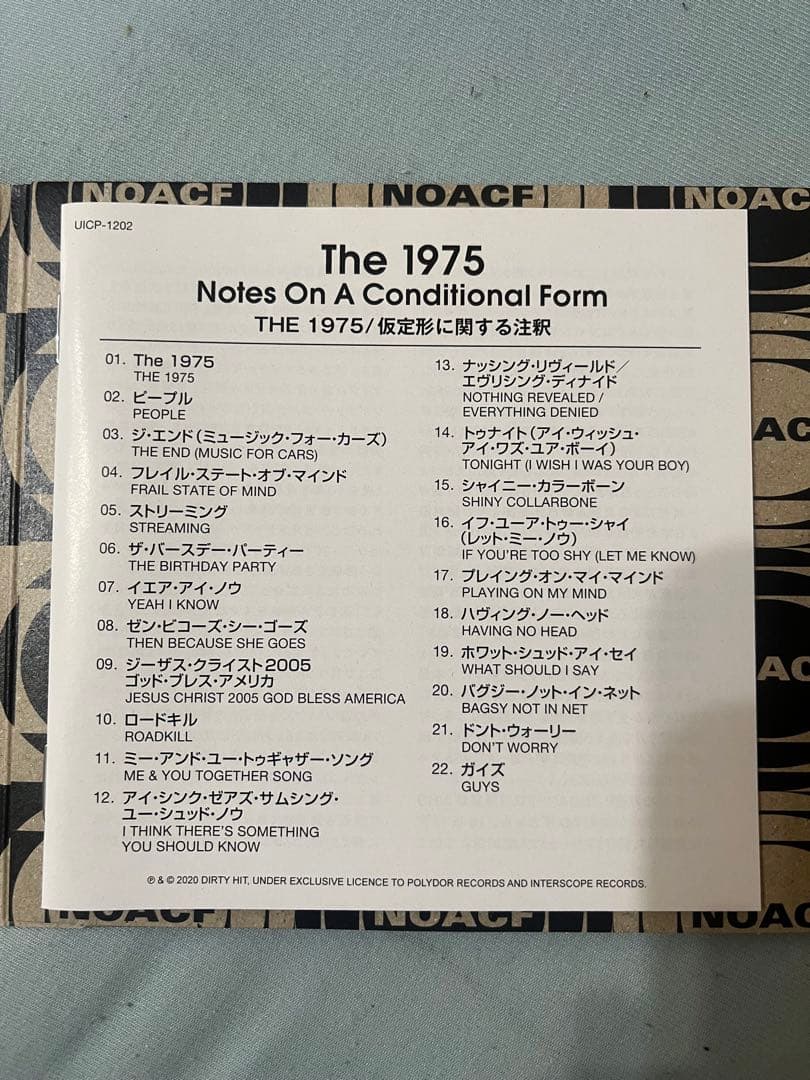 NOACF
NOACF
NOACF
UICP-1202
The 1975
Notes On A Conditional Form
THE 1975/仮定形に関する注釈
01. The 1975
THE 1975
02. ピープル
PEOPLE
03. ジ・エンド（ミュージック・フォー・カーズ）
THE END (MUSIC FOR CARS)
04. フレイル・ステート・オブ・マインド
FRAIL STATE OF MIND
05. ストリーミング
STREAMING
06. ザ・バースデー・パーティー
THE BIRTHDAY PARTY
07. イエア・アイ・ノウ
YEAH I KNOW
08. ゼン・ビコーズ・シー・ゴーズ
THEN BECAUSE SHE GOES
09. ジーザス・クライスト2005
ゴッド・ブレス・アメリカ
JESUS CHRIST 2005 GOD BLESS AMERICA
10. ロードキル
ROADKILL
11. ミー・アンド・ユー・トゥギャザー・ソング
ME & YOU TOGETHER SONG
12. アイ・シンク・ゼアズ・サムシング・
ユー・シュッド・ノウ
I THINK THERE'S SOMETHING
YOU SHOULD KNOW
13. ナッシング・リヴィールド／
エヴリシング・ディナイド
NOTHING REVEALED /
EVERYTHING DENIED
14. トゥナイト（アイ・ウィッシュ・
アイ・ワズ・ユア・ボーイ）
TONIGHT (I WISH I WAS YOUR BOY)
15. シャイニー・カラーボーン
SHINY COLLARBONE
16. イフ・ユーア・トゥー・シャイ
（レット・ミー・ノウ）
IF YOU'RE TOO SHY (LET ME KNOW)
17. プレイング・オン・マイ・マインド
PLAYING ON MY MIND
18. ハヴィング・ノー・ヘッド
HAVING NO HEAD
19. ホワット・シュッド・アイ・セイ
WHAT SHOULD I SAY
20. バグジー・ノット・イン・ネット
BAGSY NOT IN NET
21. ドント・ウォーリー
DON'T WORRY
22. ガイズ
GUYS
℗ & © 2020 DIRTY HIT, UNDER EXCLUSIVE LICENCE TO POLYDOR RECORDS AND INTERSCOPE RECORDS.
AC
AC
NOACF
NOACF
NOA